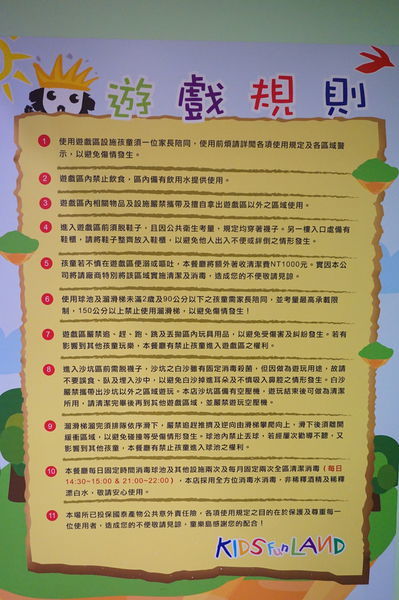 遊戲規則
1 使用遊戲區設施孩童須一位家長陪同,使用前煩請詳閱各項使用規定及各區域警
示,以避免傷情發生。
2 遊戲區內禁止飲食,區內備有飲用水提供使用。
3 遊戲區內相關物品及設施嚴禁攜帶及擅自拿出遊戲區以外之區域使用。
4 進入遊戲區前須脫鞋子,且因公共衛生考量,規定均穿著襪子。另一樓入口處備有
鞋櫃,請將鞋子整齊放入鞋櫃,以避免他人出入不便或絆倒之情形發生。
5 孩童若不慎在遊戲區便溺或嘔吐,本餐廳將額外著收清潔費NT1000元。實因本公
司將請廠商特別將該區域實施清潔及消毒,造成您的不便敬請見諒。
6 使用球池及溜滑梯未滿2歲及90公分以下之孩童需家長陪同,並考量最高承載限
制,150公分以上禁止使用溜滑梯,以避免傷害發生!
7 遊戲區嚴禁追、趕、跑、跳及丟拋區內玩具用品,以避免受傷害及糾紛發生。若有
影響到其他孩童玩樂,本餐廳有禁止孩童進入遊戲區之權利。
8 進入沙坑區前需脫襪子,沙坑之白沙雖有固定消毒殺菌,但因做為遊玩用途,故請
不要誤食、臥及埋入沙中,以避免白沙掉進耳朵及不慎吸入鼻腔之情形發生。白沙
嚴禁攜帶出沙坑以外之區域遊玩。本店沙坑區備有空壓機,遊玩結束後可做為清潔
所用,請清潔完畢後再到其他遊戲區域,並嚴禁遊玩空壓機。
9 溜滑梯溜完須排隊依序滑下,嚴禁追趕推擠及逆向由滑梯攀爬向上,滑下後須離開
緩衝區域,以避免碰撞等受傷情形發生。球池內禁止丟球,若經屢次勸導不聽,又
影響到其他孩童,本餐廳有禁止孩童進入球池之權利。
10 本餐廳每日固定時間消毒球池及其他設施兩次及每月固定兩次全區清潔消毒(每日
14:30~15:00 & 21:00~22:00),本店採用全方位消毒水消毒,非稀釋酒精及稀釋
漂白水,敬請安心使用。
11 本場所已投保國泰產物公共意外責任險,各項使用規定之目的在於保護及尊重每一
位使用者,造成您的不便敬請見諒,童樂島感謝您的配合!
KIDS Fun LAND